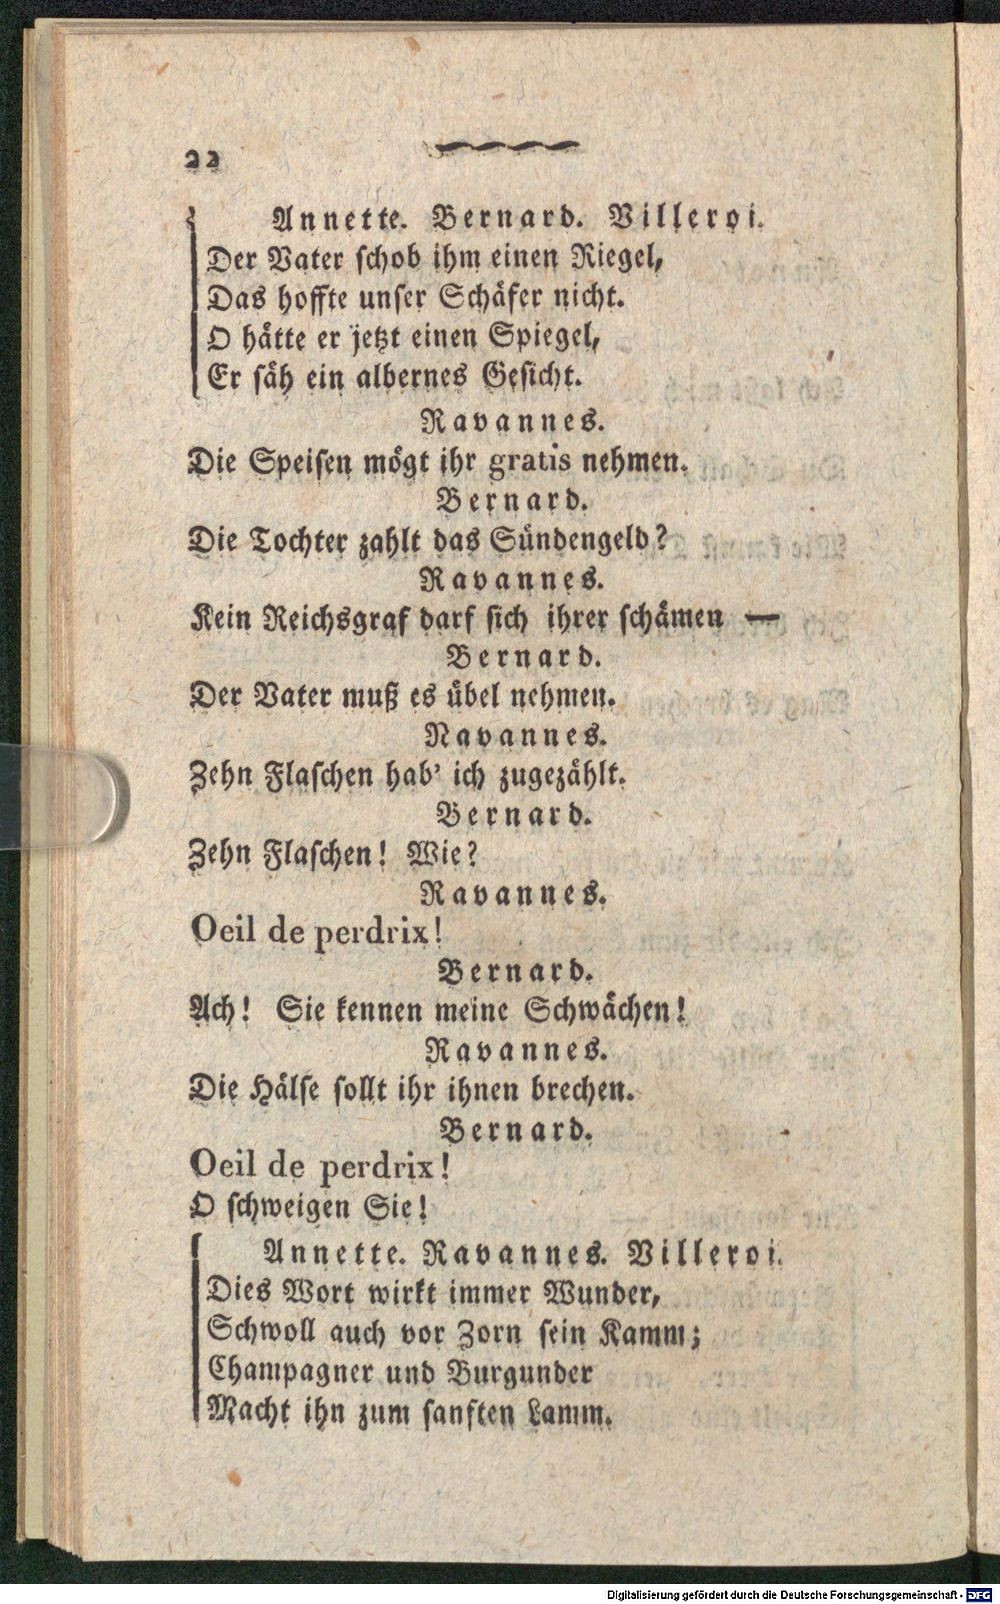 22
Annette. Bernard. Villeroi.
Der Vater schob ihm einen Riegel,
Das hoffte unser Schäfer nicht.
O hätte er jetzt einen Spiegel,
Er säh ein albernes Gesicht.
Ravannes.
Die Speisen mögt ihr gratis nehmen.
Bernard.
Die Tochter zahlt das Sündengeld?
Ravannes.
Kein Reichsgraf darf sich ihrer schämen —
Bernard.
Der Vater muß es übel nehmen.
Ravannes.
Zehn Flaschen hab' ich zugezählt.
Bernard.
Zehn Flaschen! Wie?
Ravannes.
Oeil de perdrix!
Bernard.
Ach! Sie kennen meine Schwächen!
Ravannes.
Die Hälse sollt ihr ihnen brechen.
Bernard.
Oeil de perdrix!
O schweigen Sie!
Annette. Ravannes. Villeroi.
Dies Wort wirkt immer Wunder,
Schwoll auch vor Zorn sein Kamm;
Champagner und Burgunder
Macht ihn zum sanften Lamm.
Digitalisierung gefördert durch die Deutsche Forschungsgemeinschaft - DFG